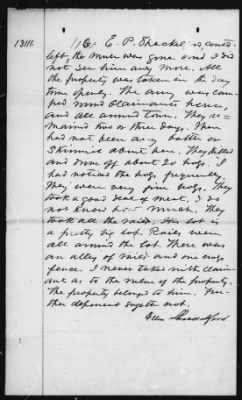 13111. 116 E. P. Shackel, cont'd
left, the mule was gone and I did
not see him any more. All
the property was taken in the day
time openly. The army was cam-
ped near Claimants house,
and all around town. They re-
mained two or three days. There
had not been any battle or
Skirmish about here. They killed
and drove off about 20 hogs. I
had noticed the hogs frequently.
They were very fine hogs. They
took a good deal of meat, I do
not know how much. They
took all the rails. The lot is
a pretty big lot. Rails were
all around the lot. There was
an alley of rails and one cross
fence. I never talked with claim-
ant as to the value of the property.
The property belonged to him. Fur-
ther deponent sayeth not.
Ellen